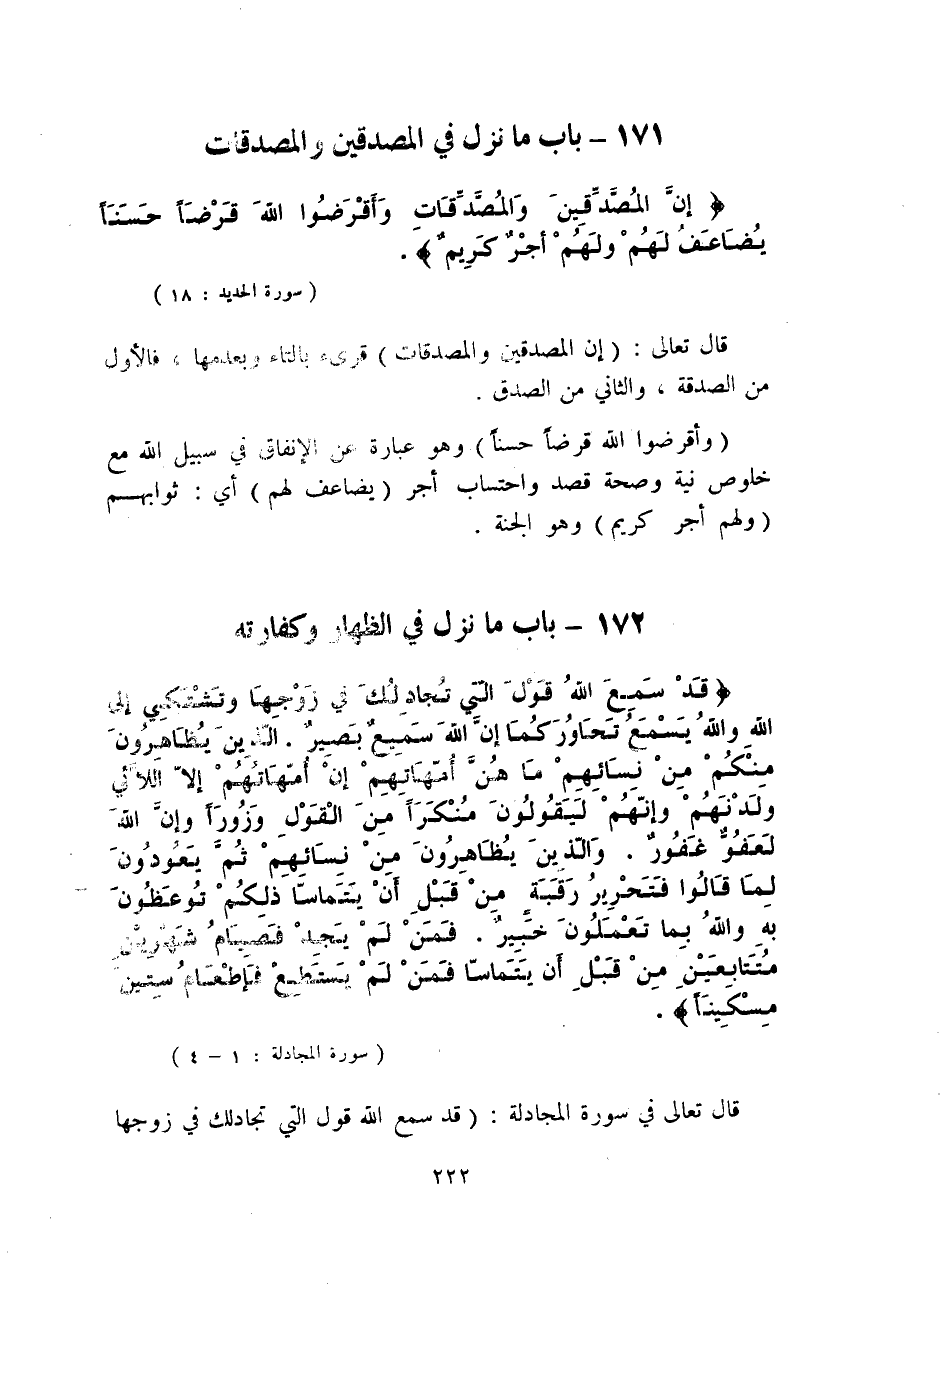 ١٧١ – باب ما نزل في المصدقين والمصدقات
﴿ إنَّ المُصَّدِّقِينَ وَالمُصَّدِّقَاتِ وَأَقْرَضُوا اللهَ قَرْضَاً حَسَنَاً
يُضَاعَفُ لَهُمْ ولَهُمْ أجْرٌ كَرِيمٌ ﴾ .
( سورة الحديد : ١٨ )
قال تعالى : ( إن المصدقين والمصدقات ) قرىء بالتاء وبعدمها ، فالأول
من الصدقة ، والثاني من الصدق .
( وأقرضوا الله قرضاً حسناً ) وهو عبارة عن الإنفاق في سبيل الله مع
خلوص نية وصحة قصد واحتساب أجر ( يضاعف لهم ) أي : ثوابهم
( ولهم أجر كريم ) وهو الجنة .
١٧٢ – باب ما نزل في الظهار وكفارته
﴿ قَدْ سَمِعَ اللهُ قَوْلَ الّتي تُجادِلُكَ في زَوْجِهَا وتَشْتَكِي إلى
اللهِ واللهُ يَسْمَعُ تَحَاوُرَكُمَا إنَّ اللهَ سَمِيعٌ بَصِيرٌ . الّذِينَ يُظَاهِرُونَ
مِنْكُمْ مِنْ نِسَائِهِمْ مَا هُنَّ أُمّهَاتِهِمْ إنْ أُمّهَاتُهُمْ إلاّ اللاّئي
ولَدْنَهُمْ وإنّهُمْ لَيَقُولُونَ مُنْكَرَاً مِنَ الْقَوْلِ وَزُورَاً وإنَّ اللهَ
لَعَفُوٌّ غَفُورٌ . وَالّذِينَ يُظَاهِرُونَ مِنْ نِسَائِهِمْ ثُمَّ يَعُودُونَ
لِمَا قَالُوا فَتَحْرِيرُ رَقَبَةٍ مِنْ قَبْلِ أنْ يَتَماسّا ذلِكُمْ تُوعَظُونَ
بِهِ واللهُ بِما تَعْمَلُونَ خَبِيرٌ . فَمَنْ لَمْ يَجِدْ فَصِيَامُ شَهْرَيْنِ
مُتَتَابِعَيْنِ مِنْ قَبْلِ أن يَتَمَاسّا فَمَنْ لَمْ يَسْتَطِعْ فَإطْعَامُ سِتِينَ
مِسْكِينَاً ﴾ .
( سورة المجادلة : ١ – ٤ )
قال تعالى في سورة المجادلة : ( قد سمع الله قول التي تجادلك في زوجها
٢٢٢